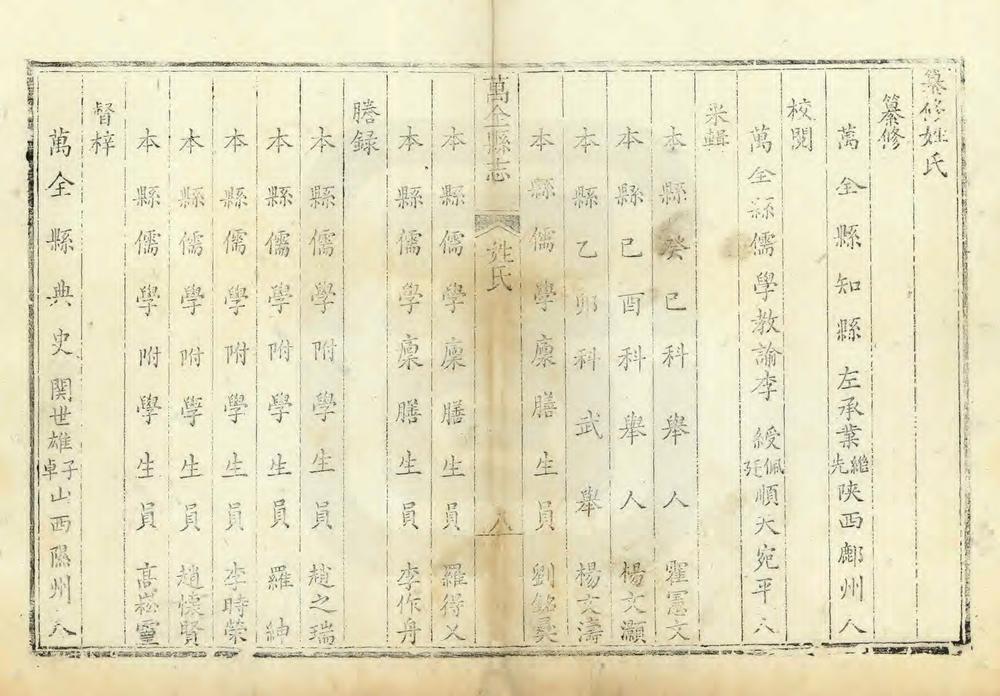 纂修姓氏
纂修
萬全縣知縣左承業繼先陝西鄜州人
校閱
萬全縣儒學教諭李綬佩廷順天宛平人
采輯
本縣癸巳科舉人霍憲文
本縣已酉科舉人楊文灝
本縣乙卯科武舉楊文濤
本縣儒學廩膳生員劉銘彝
萬全縣志 姓氏 八
本縣儒學廩膳生員羅得乂
本縣儒學廩膳生員李作舟
謄録
本縣儒學附學生員趙之瑞
本縣儒學附學生員羅紳
本縣儒學附學生員李時榮
本縣儒學附學生員趙懷賢
本縣儒學附學生員高崧靈
督梓
萬全縣典史関世雄子卓山西隰州人